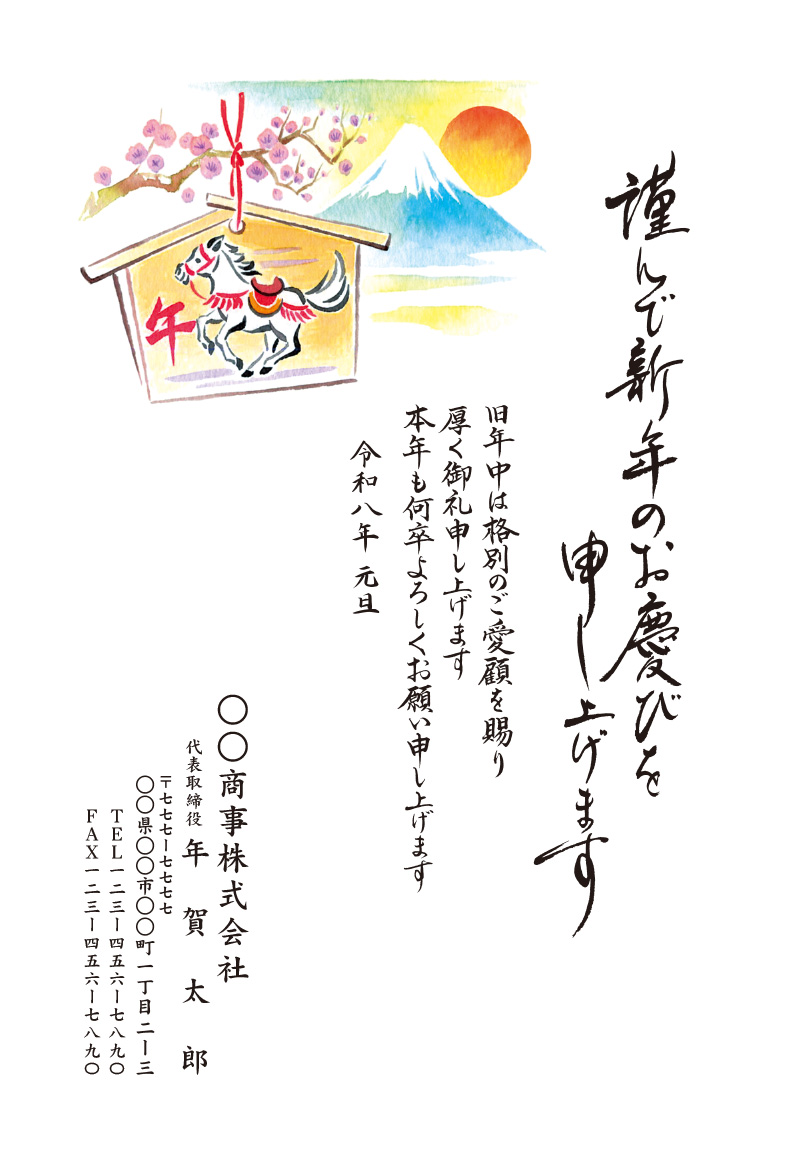 謹んで新年のお慶びを
申し上げます
旧年中は格別のご愛顧を賜り
厚く御礼申し上げます
本年も何卒よろしくお願い申し上げます
令和八年 元旦
午
〇〇商事株式会社
代表取締役 年賀太郎
〒七七七ー七七七七
〇〇県〇〇市〇〇町一丁目二ー三
TEL一二三ー四五六ー七八九〇
FAX一二三ー四五六ー七八九〇